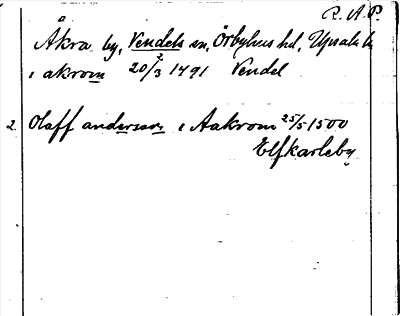 R. A. P.
Åkra by, Vendels sn, Örbyhus hd, Upsala l.
i akrom 20/3 1491 Vendel
2. Olaff andersson i Aakrom 25/5 1500
Elfkarleby